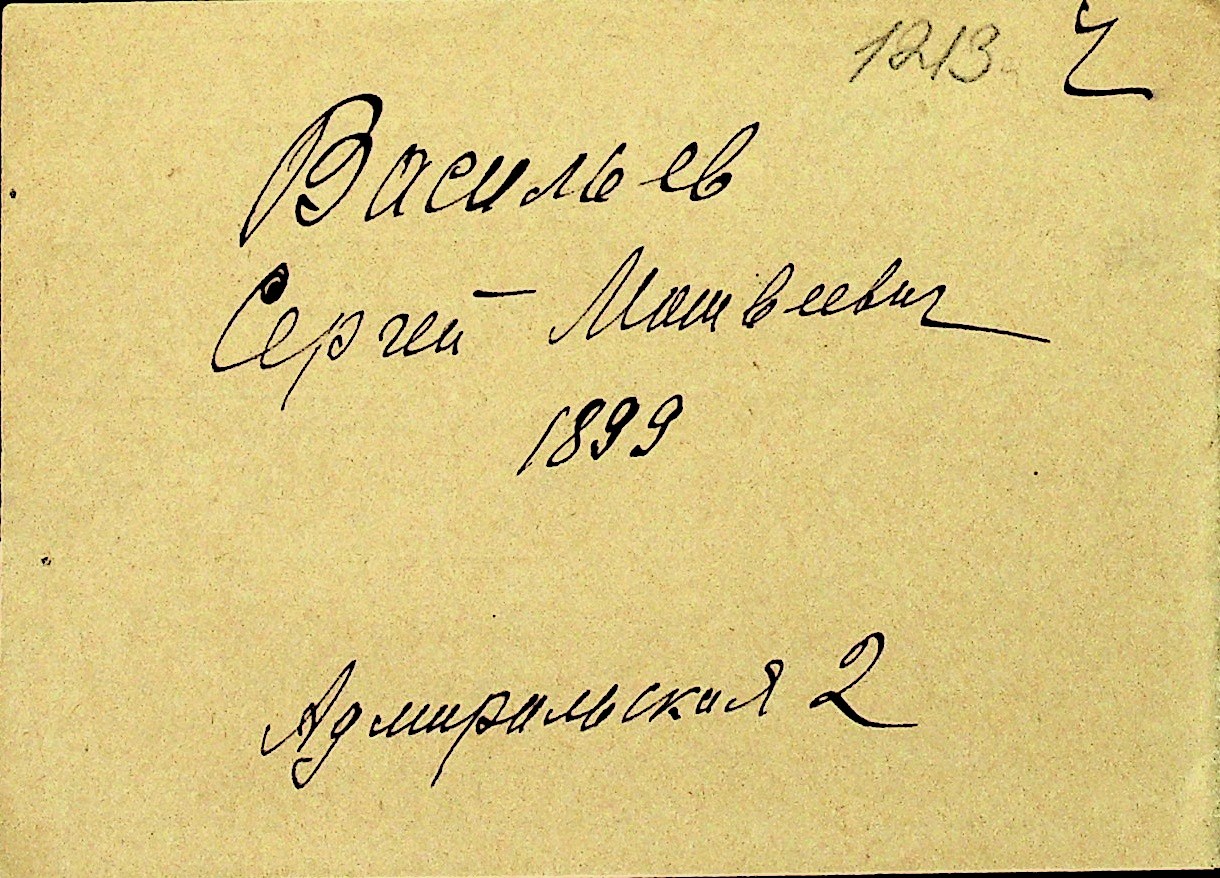 1213 ч
Васильев
Сергей Матвеевич
1899
Адмиральская 2